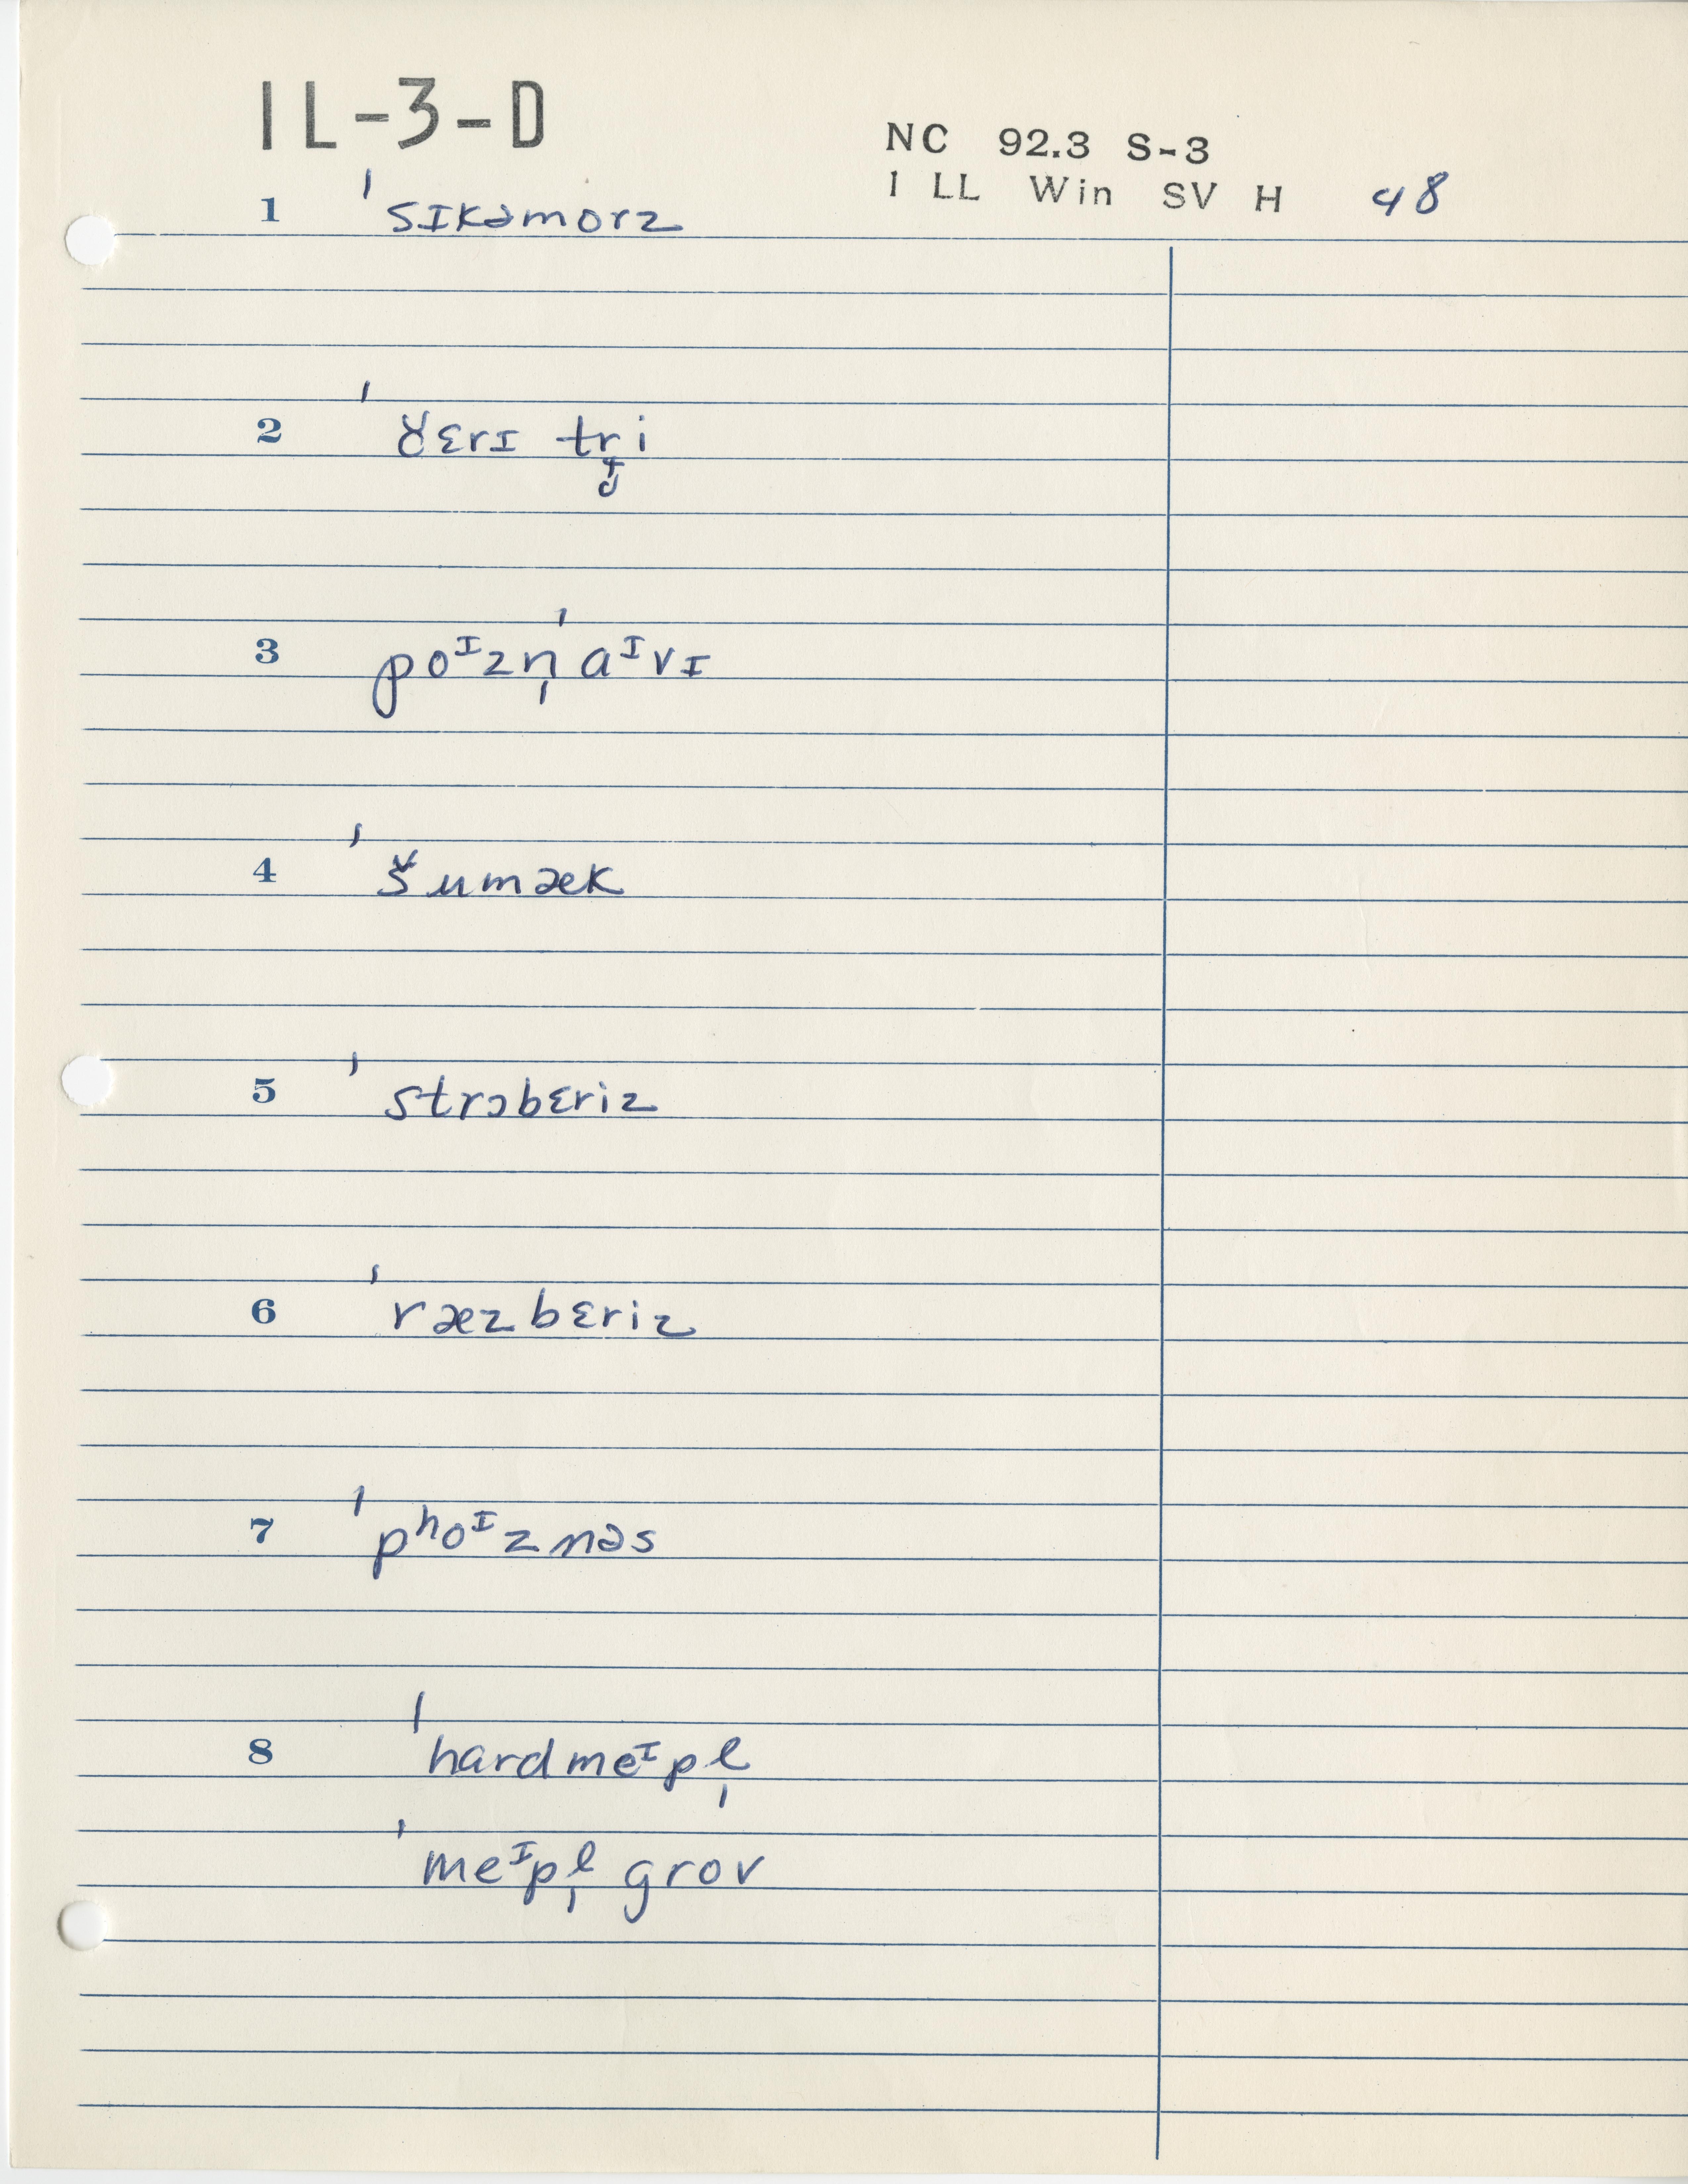 IL-3-D
NC 92.3 S-3
ILL Win SV H 48
1 ˈsɪkəmorz
2 ˈɣɛrɪ tr̥i
3 poᶦzn̩ˈaᶦvɪ
4 ˈšumæk
5 ˈstrɔbɛriz
6 ˈræzbɛriz
7 ˈpʰoᶦznəs
8 ˈhardmeᶦpl̩
ˈmeᶦpl̩ grov